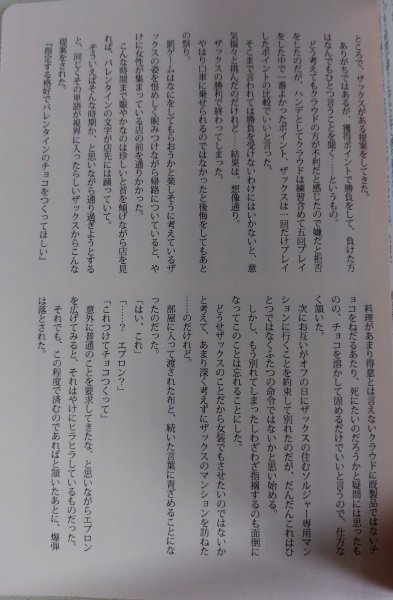 ところで、ザックスがある提案をしてきた。
ありがちではあるが、獲得ポイントで勝負をして、負けた方
はなんでもひとつ言うことを聞く――というもの。
どう考えてもクラウドの方が不利だと感じたので嫌だと拒否
をしたのだが、ハンデとしてクラウドは練習含めて五回プレイ
をした中で一番よかったポイント、ザックスは一回だけプレイ
したポイントの比較でいいと言う。
そこまで言われては勝負を受けないわけにはいかないと、意
気揚々と挑んだのだけれど……結果は、想像通り。
ザックスの勝利で終わってしまった。
やはり口車に乗せられるのではなかったと後悔をしてもあと
の祭り。
罰ゲームはなにをしてもらおうかと楽しそうに考えているザ
ックスの姿を恨めしく睨みつけながら帰路についていると、や
けに女性が集まっている店の前を通りかかった。
こんな時間まで賑やかなのは珍しいと首を傾げながら店を見
れば、バレンタインの文字が店先には踊っていて。
そういえばそんな時期か、と思いながら通り過ぎようとする
と、同じくその単語が視界に入ったらしいザックスからこんな
提案をされた。
『指定する格好でバレンタインのチョコをつくってほしい』
料理があまり得意とは言えないクラウドに既製品ではないチ
ョコをねだるあたり、死にたいのだろうかと疑問には思ったも
のの、チョコを溶かして固めるだけでいいと言うので、仕方な
く頷いた。
次にお互いがオフの日にザックスの住むソルジャー専用マン
ションに行くことを約束して別れたのだが、だんだんこれはひ
とつではなくふたつの命令ではないかと思い始める。
しかし、もう別れてしまったしわざわざ指摘するのも面倒に
なってこのことは忘れることにした。
どうせザックスのことだから女装でもさせたいのではないか
と考えて、あまり深く考えずにザックスのマンションを訪ねた
……のだけれど。
部屋に入って渡された布と、続いた言葉に青ざめることにな
ったのだった。
「はい、これ」
「……？　エプロン？」
「これつけてチョコつくって」
意外に普通のことを要求してきたな、と思いながらエプロン
を広げてみると、それはやけにヒラヒラしているものだった。
それでも、この程度で済むのであればと頷いたあとに、爆弾
は落とされた。